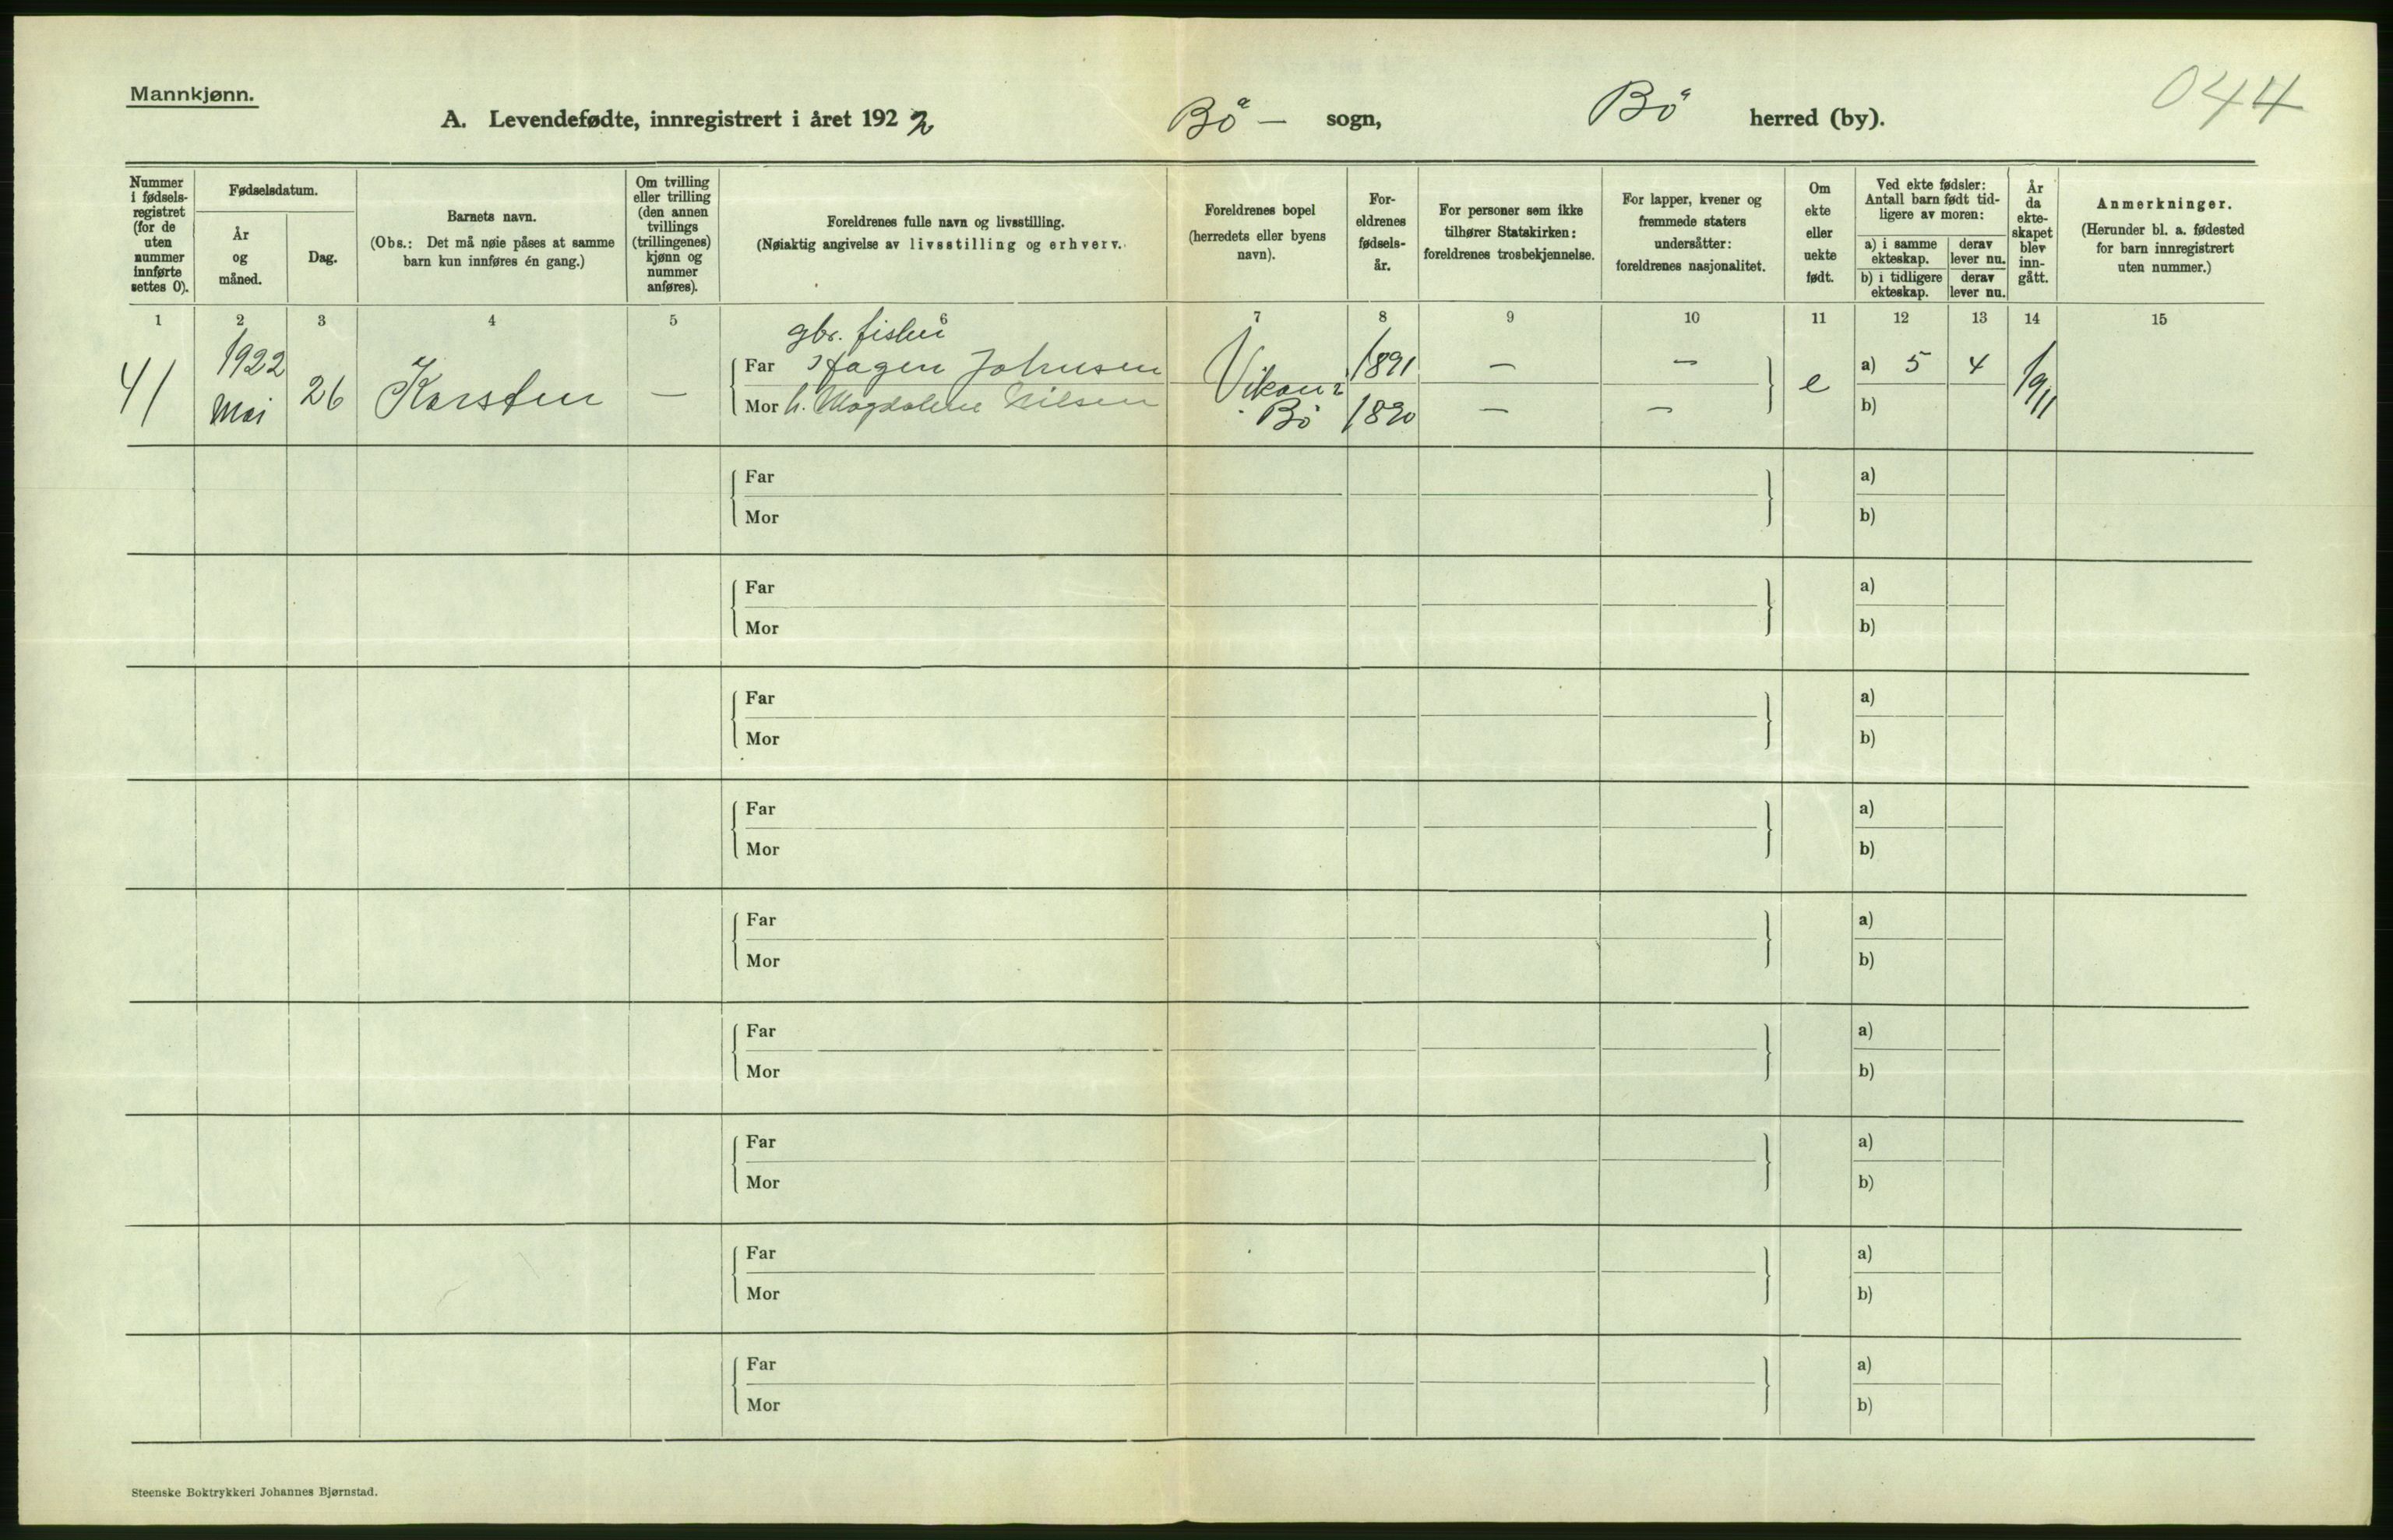 Mannkjønn.
044
A. Levendefødte, innregistrert i året 1922 Bö – sogn, Bö herred (by).
Nummer i fødsels-registret (for de uten nummer innførte settes 0).
Fødselsdatum.
År og måned.
Dag.
Barnets navn.
(Obs.: Det må nøie påses at samme barn kun innføres én gang.)
Om tvilling eller trilling (den annen tvillings (trillingenes) kjønn og nummer anføres).
Foreldrenes fulle navn og livsstilling.
(Nøiaktig angivelse av livsstilling og erhverv.)
Foreldrenes bopel (herredets eller byens navn).
For-eldrenes fødsels-år.
For personer som ikke tilhører Statskirken: foreldrenes trosbekjennelse.
For lapper, kvener og fremmede staters undersåtter: foreldrenes nasjonalitet.
Om ekte eller uekte født.
Ved ekte fødsler: Antall barn født tid-ligere av moren:
a) i samme ekteskap.
derav lever nu.
b) i tidligere ekteskap.
derav lever nu.
År da ekte-skapet blev inn-gått.
Anmerkninger.
(Herunder bl. a. fødested for barn innregistrert uten nummer.)
1 2 3 4 5 6 7 8 9 10 11 12 13 14 15
gbr. fisker
41 1922 Mai 26 Karsten –
Far Hagen Johnsen
Mor h. Magdalene Nilsen
Vikan i Bö
1891 – –
1890 – –
e
a) 5 4
b)
1911
Far a)
Mor b)
Far a)
Mor b)
Far a)
Mor b)
Far a)
Mor b)
Far a)
Mor b)
Far a)
Mor b)
Far a)
Mor b)
Far a)
Mor b)
Far a)
Mor b)
Steenske Boktrykkeri Johannes Bjørnstad.